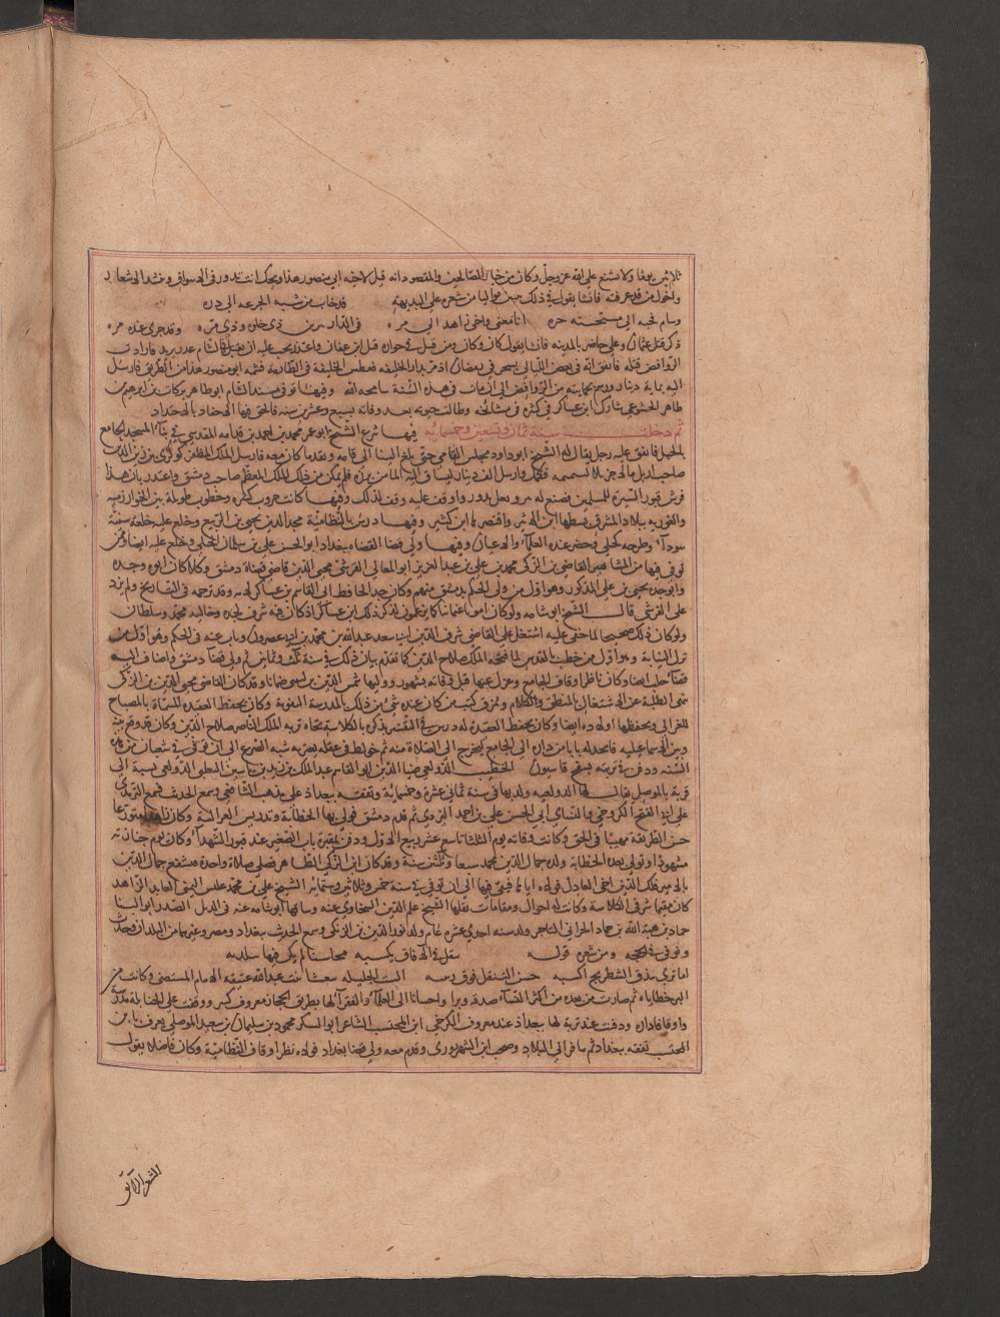 ثلاثين يوما ولا تشنع على الله عز وجل وكان من خيار الصالحين والمقصود انه قيل لاخيه ابي منصور هذا ويحك انت تدور في الاسواق وتنشد الاشعار
واخوك من قد عرفت فانشا يقول في ذلك بيتين مواليا من شعره على البديهة قد خاب من شبه الجزعه الى دره
وسام قحبه الى مستحنه حره انا مغني واخي زاهد الى مره في الدار بيرين ذي حلوه وذي مره وقد جرى عنده مره
ذكر قتل عثمان وعلي حاضر بالمدينه فانشا يقول كان وكان ومن قتل في جواره قبل ابن عفان واعتذر يجب عليه ان يقبل في الشام عذر يزيد فارادت
الروافض قتله فاتفق انه في بعض الليالي يسحر في رمضان اذ مر بدار الخليفه فعطس الخليفة في الطارمه فشمته ابو منصور هذا من الطريق فارسل
اليه بماية دينار ورسم بحمايته من الروافض الى ان مات في هذه السنة سامحه الله وفيها توفي مسند الشام ابو طاهر بركات بن ابرهيم بن
طاهر الخشوعي شارك ابن عساكر في كثره في مشائخه وطالت حيوته بعد وفاته بسبع وعشرين سنه فالحق فيها الاحفاد بالاجداد
ثم دخلت سنة ثمان وتسعين وخمسمائه فيها شرع الشيخ ابو عمر محمد بن احمد بن قدامه المقدسي في بناء المسجد الجامع
بالجبل فانفق عليه رجل يقال له الشيخ ابو داود محاسن الفامي حتى بلغ البنا الى قامه ونفد ما كان معه فارسل الملك المظفر كوكري بن زين الدين
صاحب اربل مالا جزيلا لتتميمه فكمل وارسل الف دينار ليساق اليه الما من برزه فلم يمكن من ذلك الملك المعظم صاحب دمشق واعتذر بان هذا
فرش قبور كثيرة للمسلمين فصنع له بير وبغل يدور واوقف عليه وقف لذلك وفيها كانت حروب كثيره وخطوب طويلة بين الخوارزميه
والغوريه ببلاد المشرق بسطها ابن الاثير واقتصر بها ابن كثير وفيها درس بالنظامية مجد الدين يحيى بن الربيع وخلع عليه خلعه سنية
سودآ وطرحه كحلي وحضر عنده العلمآ والاعيان وفيها ولي قضا القضاه ببغداد ابو الحسن علي بن سلمان الجيلي وخلع عليه ايضا وممن
توفي فيها من المشاهير القاضي بن الزكي محمد بن علي بن محمد بن عبد العزيز ابو المعالي القرشي محيي الدين قاضي قضاة دمشق وكلا كان ابوه وجده
وابو جده يحيى بن علي المذكور وهو اول من ولي الحكم بدمشق منهم وكان جد الحافظ ابي القاسم بن عساكر لامه وقد ترجمه في التاريخ ولم يزد
على القرشي قال الشيخ ابو شامه ولو كان امويا عثمانيا كما يزعمون لذكر ذلك ابن عساكر اذ كان فيه شرف لجده وخاليه محمد وسلطان
ولو كان ذلك صحيحا لما خفي عليه اشتغل على القاضي شرف الدين ابي سعد عبد الله بن محمد بن ابي عصرون وناب عنه في الحكم وهو اول من
ترك النيابة وهو اول من خطب بالقدس لما فتحه الملك صلاح الدين كما تقدم بيان ذلك في سنة ثلث وثمانين ثم ولي قضا دمشق واضاف اليه
قضآ حلب ايضا وكان ناظر اوقاف الجامع وعزل عنها قبل وفاته بشهور ووليها شمس الدين بن ضمانا وقد كان القاضي محيي الدين بن الزكي
ينهى الطلبة عن الاشتغال بالمنطق والكلام ويمزق كتب من كان عنده شي من ذلك بالمدرسة النورية وكان يحفظ العقيده المسماة بالمصباح
للغزالي ويحفظها اولاده ايضا وكان له درس في التفسير يذكره بالكلاسه تجاه تربه الملك الناصر صلاح الدين وكان قد وقع بينه
وبين الاسماعيليه فاتخذ له بابا من داره الى الجامع ليخرج الى الصلاة منه ثم خولط في عقله يعتريه شبه الصرع الى ان توفي في شعبان من هذه
السنه ودفن في تربته بسفح قاسيون الخطيب الدولعي ضيا الدين ابو القاسم عبد الملك بن زيد بن ياسين التغلبي الدولعي نسبة الى
قرية بالموصل يقال لها الدولعيه ولد بها في سنة ثماني عشرة وخمسمائة وتفقه ببغداد على مذهب الشافعي وسمع الحديث فسمع الترمذي
على ابي الفتح الكروخي والنساي ابي الحسن علي بن احمد اليزدي ثم قدم دمشق فولي بها الخطابة وتدريس الغزالية وكان زاهدا متورعا
حسن الطريقه مهيبا في الحق وكانت وفاته يوم الثلثا تاسع عشر ربيع الاول ودفن بمقبرة باب الصغير عند قبور الشهدآ وكان يوم جنازته
مشهودا وتولى بعده الخطابة ولده جمال الدين محمد سبعا وثلثين سنة وقد كان ابن الزكي الظاهر فصلى صلاة واحدة فتشفع جمال الدين
بالامير فلك الدين اخي العادل فولاه اياها فبقي فيها الى ان توفي في سنة خمس وثلاثين وستمايه الشيخ علي بن محمد بن علس اليمني العابد الزاهد
كان مقيما شرقي الكلاسة وكانت له احوال ومقامات نقلها الشيخ علم الدين السخاوي عنه وساقها ابو شامه عنه في الذيل الصدر ابو الثنا
حماد بن هبة الله بن حماد الحراني التاجر ولد سنه احدي عشره عام ولد نور الدين بن الزنكي وسمع الحديث ببغداد ومصر وغيرهما من البلدان وحدث
وتوفي في الحجه ومن شعره قوله تنقل في الافاق يكسبه محاسنا لم يكن فيها ببلدته
اما ترى بيدق الشطرنج اكسبه حسن التنقل فوق رتبته الست الجليله بنفشا بنت عبد الله عتيقه الامام المستضي وكانت من
اكبر حظاياه ثم صارت من بعده من اكثر النسآ صدقة وبرا واحسانا الى العلمآ والفقرآ لها بطريق الحجاز معروف كثير ووقفت على الحنابلة مدرسة
واوقافا داره ودفنت عند تربة لها ببغداد عند معروف الكرخي ابن المحتسب الشاعر ابو السكر محمود بن سليمان بن سعيد الموصلي يعرف بابن
المحتسب تفقه ببغداد ثم سافر الى البلاد وصحب ابن الشهرزوري وقدم معه ولي قضا بغداد فولاه نظر اوقاف النظامية وكان فاضلا يقول
الشعر الرايق